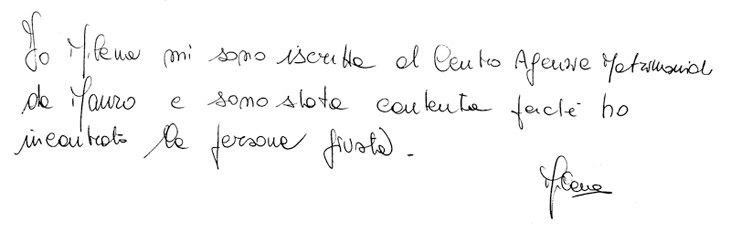 Io Milena mi sono iscritta al Centro Agenzie Matrimoniali
da Mauro e sono stata contenta perché ho
incontrato la persona giusta.
Milena